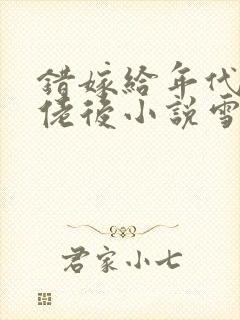 錯嫁給年代
佬後小說雪
君家小七